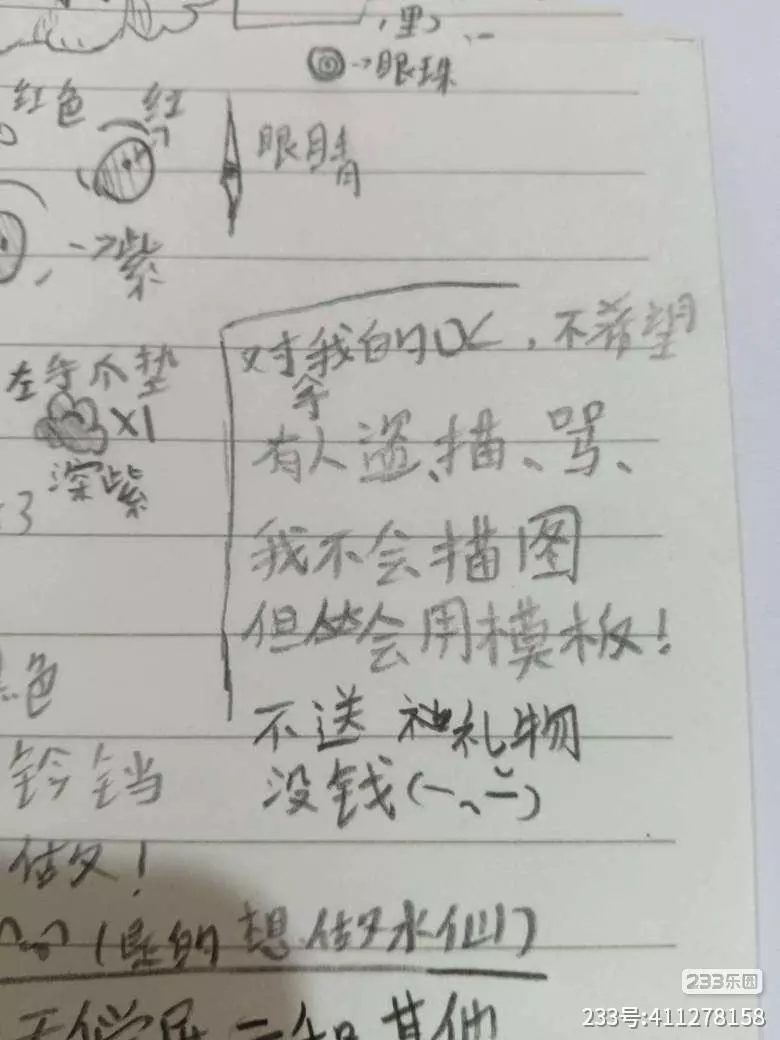 里
→眼珠
红色 红
眼睛
→紫
对我的OC，不希望
左手爪垫
×1
有人盗、描、骂、
深紫
:3
我不会描图
但会用模板！
色
不送礼物
铃铛
没钱(一、一)
做！
想做水仙)
二和其他
233乐园
233号:411278158